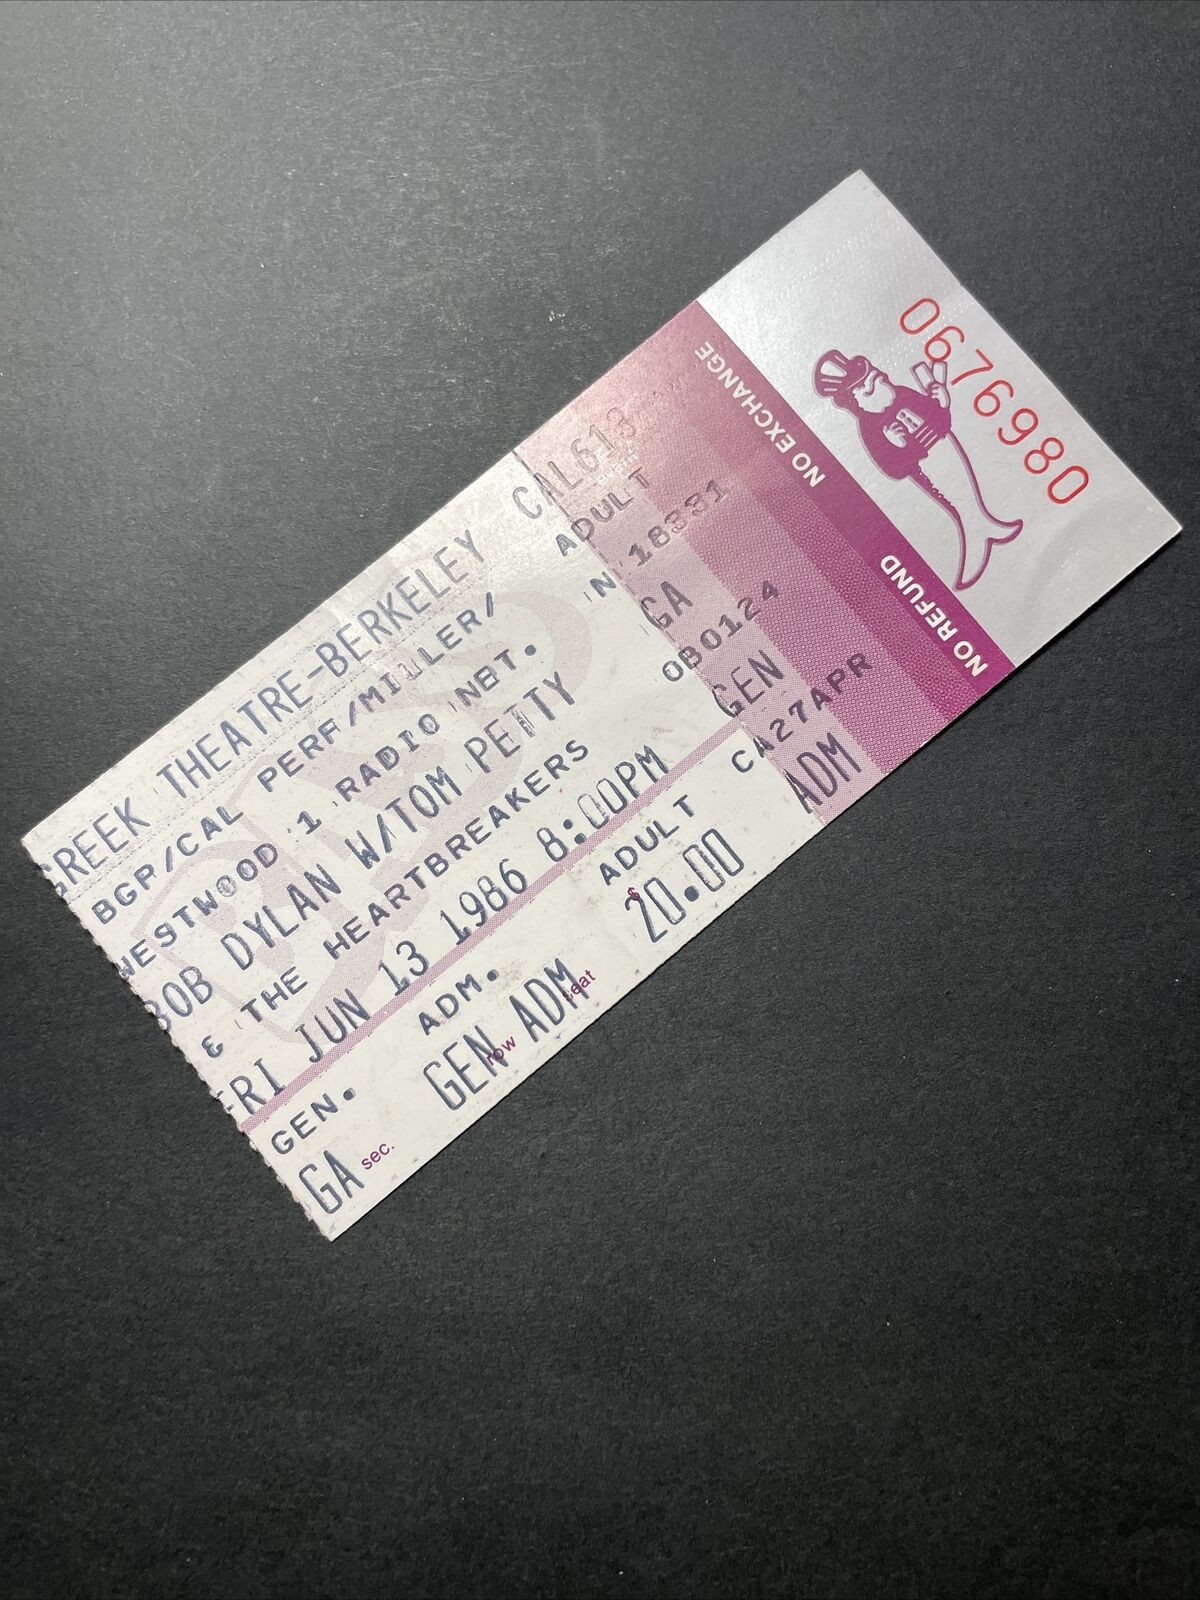 GREEK THEATRE-BERKELEY
BGP/CAL PERF/MILLER/
WESTWOOD 1 RADIO NET.
BOB DYLAN W/TOM PETTY
& THE HEARTBREAKERS
FRI JUN 13 1986 8:00PM
GEN. ADM. ADULT
GA GEN ADM $ 20.00
sec. row seat
CAL613
ADULT
N 18331
GA
0B0124
GEN
CA27APR
ADM
NO EXCHANGE
NO REFUND
0676980